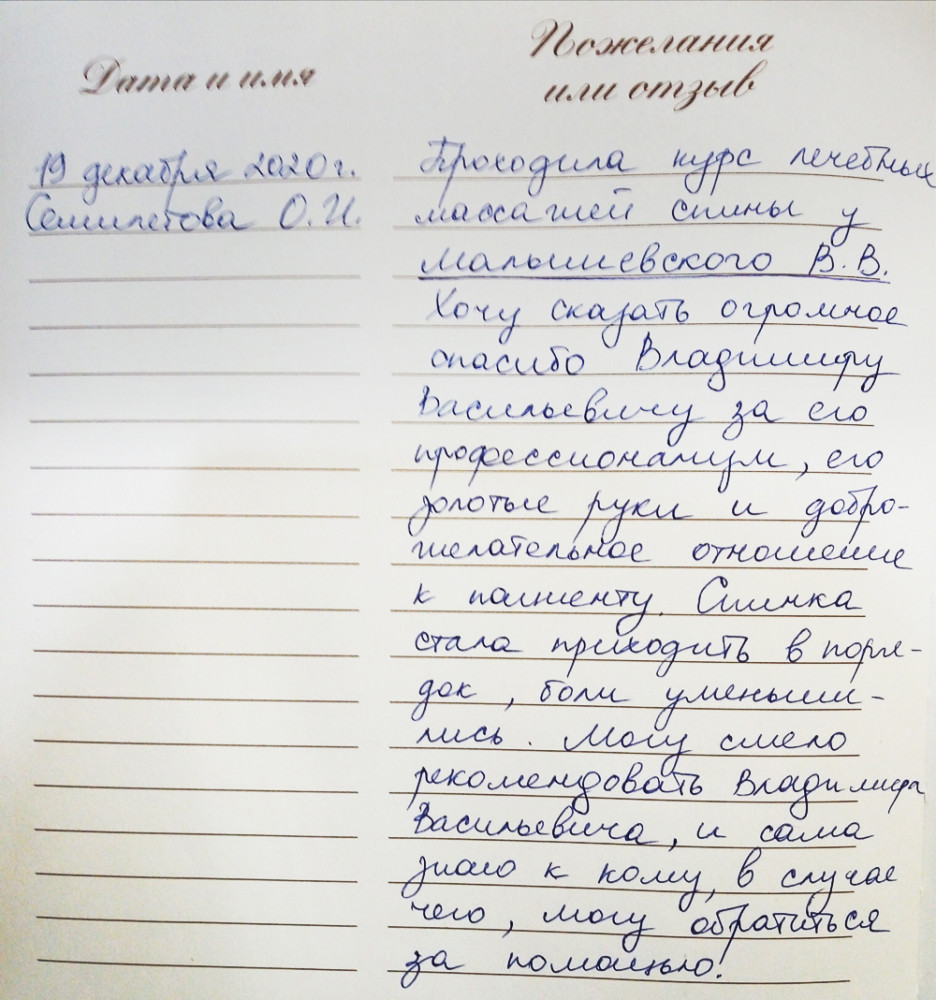 Дата и имя
Пожелания
или отзыв
19 декабря 2020г.
Семилетова О.И.
Проходила курс лечебных
массажей спины у
Малышевского В.В.
Хочу сказать огромное
спасибо Владимиру
Васильевичу за его
профессионализм, его
золотые руки и добро-
желательное отношение
к пациенту. Спинка
стала приходить в поря-
док, боли уменьши-
лись. Могу смело
рекомендовать Владимира
Васильевича, и сама
знаю к кому, в случае
чего, могу обратиться
за помощью!